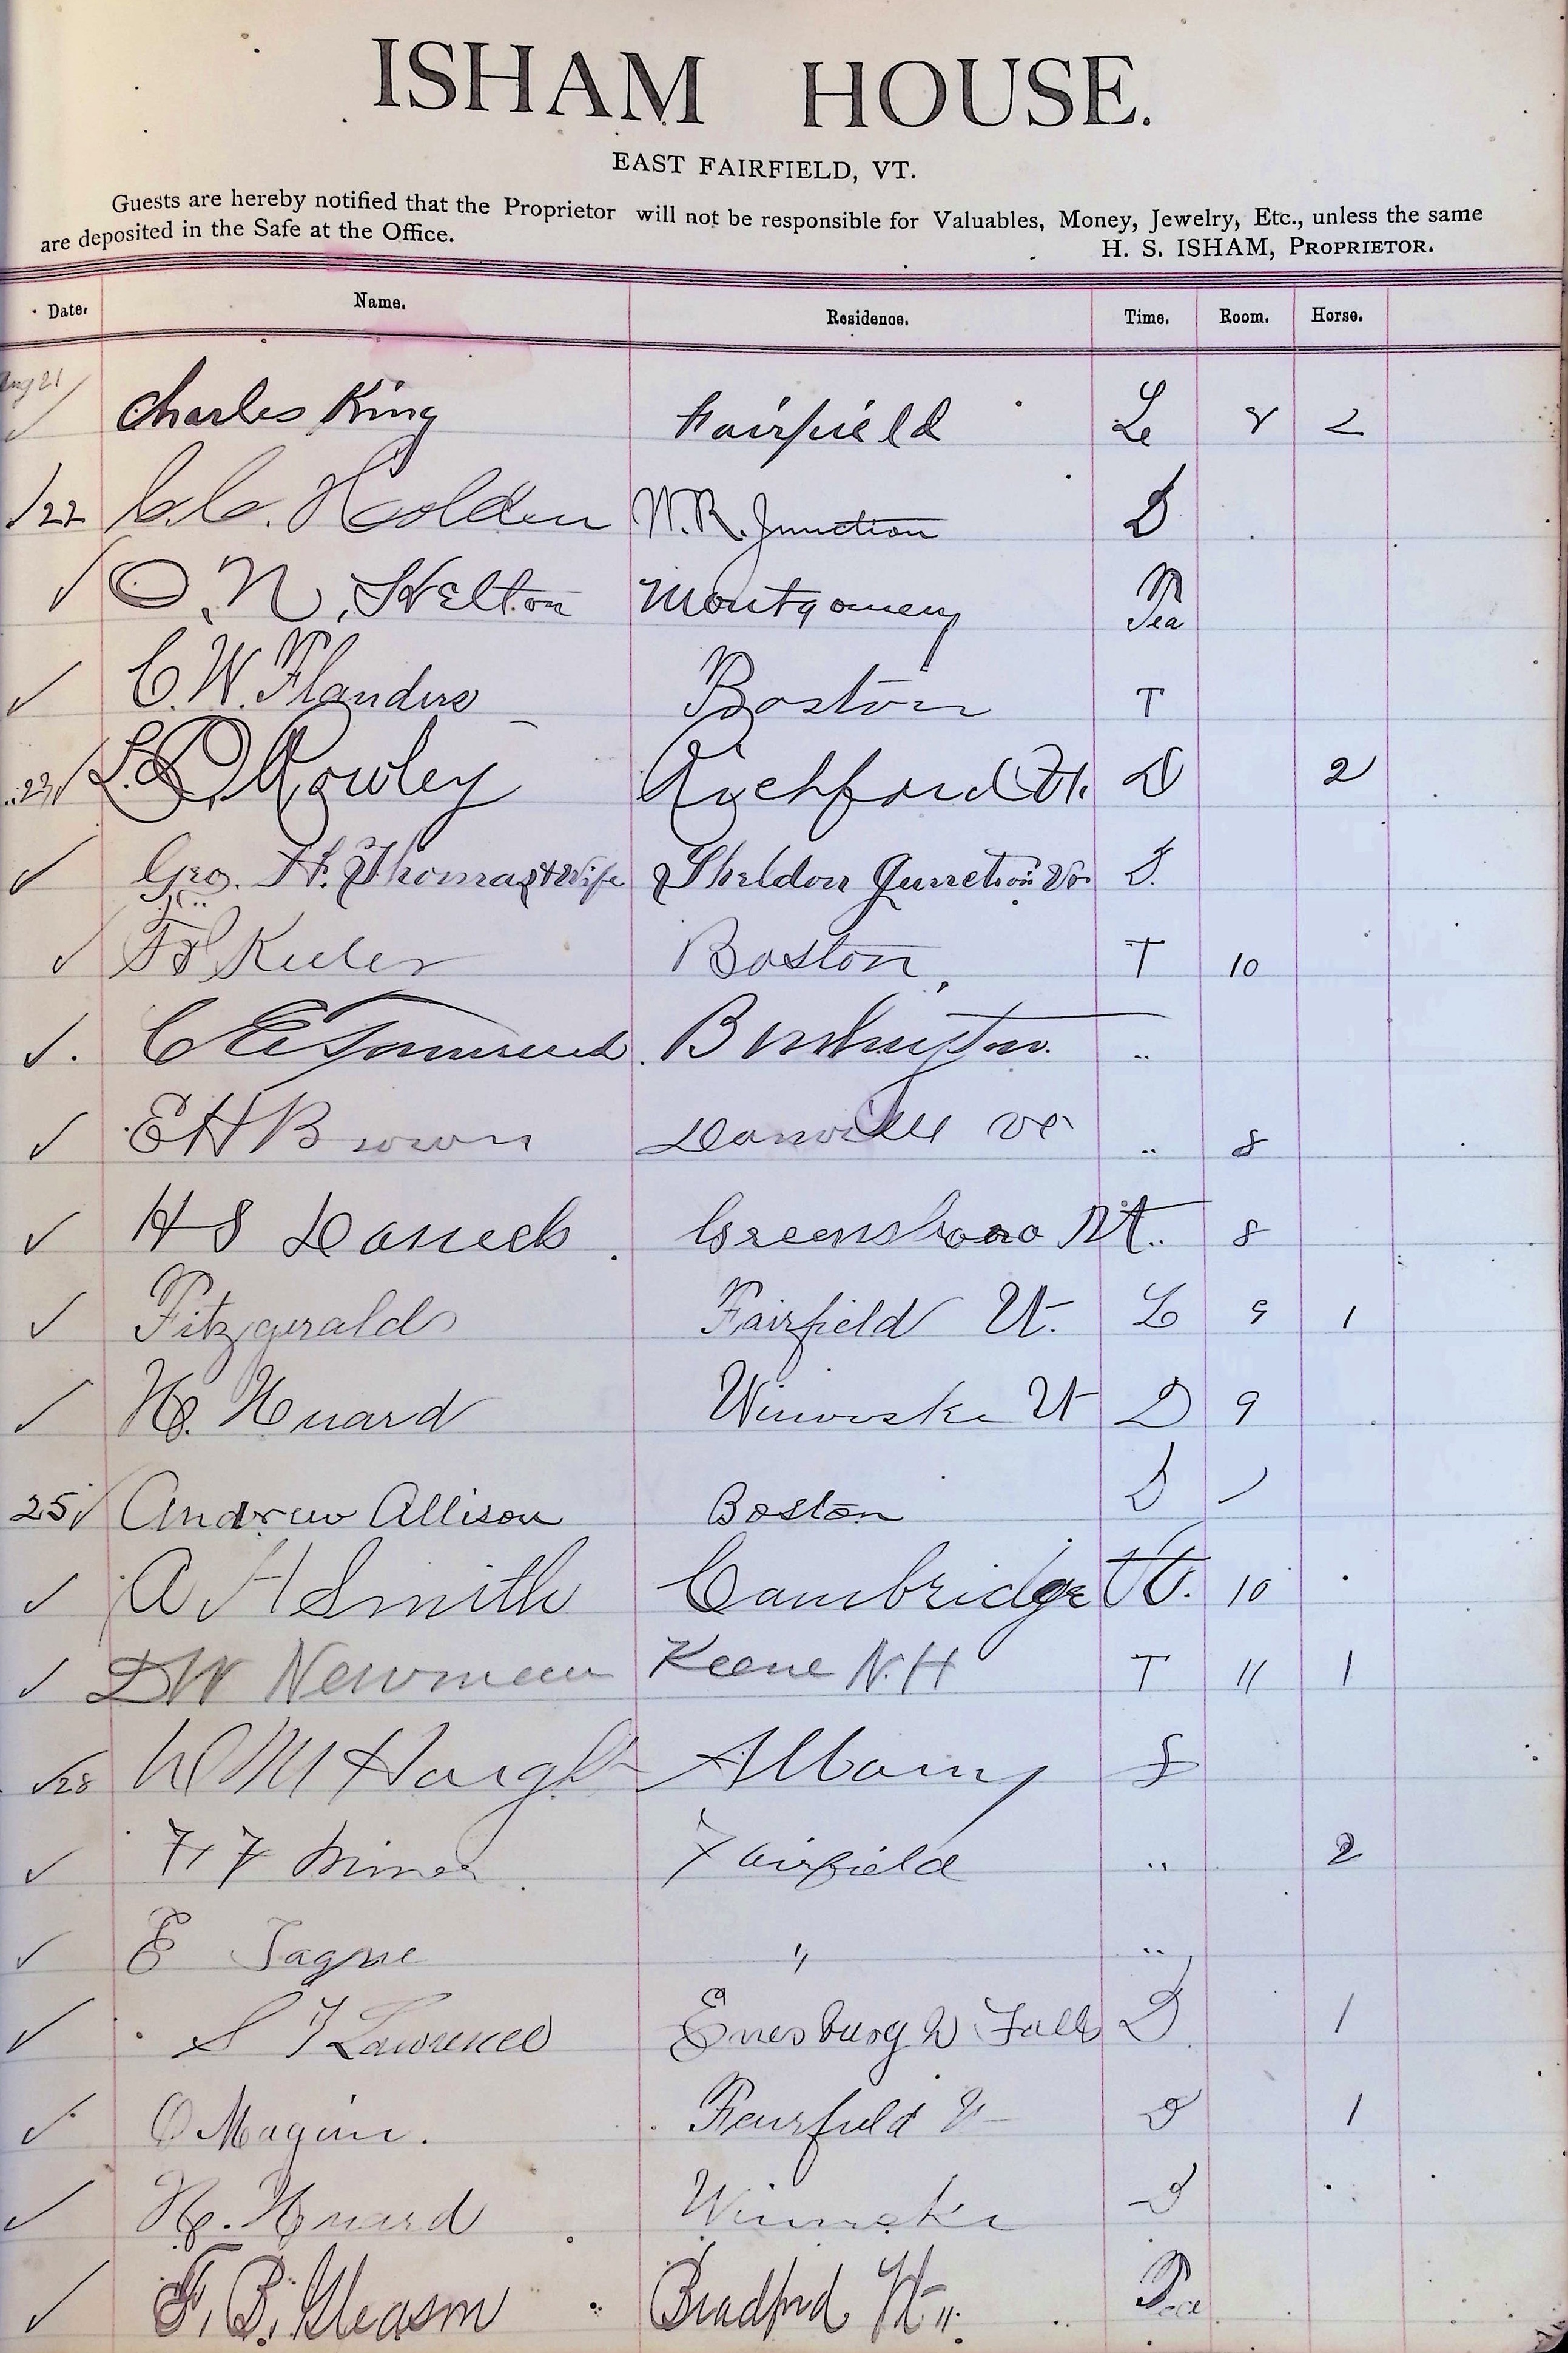 ISHAM HOUSE.
EAST FAIRFIELD, VT.
Guests are hereby notified that the Proprietor will not be responsible for Valuables, Money, Jewelry, Etc., unless the same
are deposited in the Safe at the Office.
H. S. ISHAM, PROPRIETOR.
Date. Name. Residence. Time. Room. Horse.
Aug 21 Charles King Fairfield 8 2
22 C.C. Holden W.R. Junction D
O. N. Kelton Montgomery Tea
C. W. Flanders Boston T
23 L.D. Rowley Richford Vt. D 2
Geo. H. Thomas & Wife Sheldon Junction Vt. D.
Boston, T 10
C E Burlington. "
E H Brown Danville Vt " 8
H S Greensboro Vt. " 8
Fitzgerald Fairfield Vt. L 9 1
H. Huard Winooski Vt D 9
25 Andrew Allison Boston D
A H Smith Cambridge Vt. 10
D W Newman Keene N.H T 11 1
28 W M Haugh Albany
F F Fairfield " 2
E " "
S F Lawrence Enosburgh Falls D 1
O Maginn. Fairfield V D 1
H. Huard Winooski D
F. B. Gleason Bradford Vt. Tea